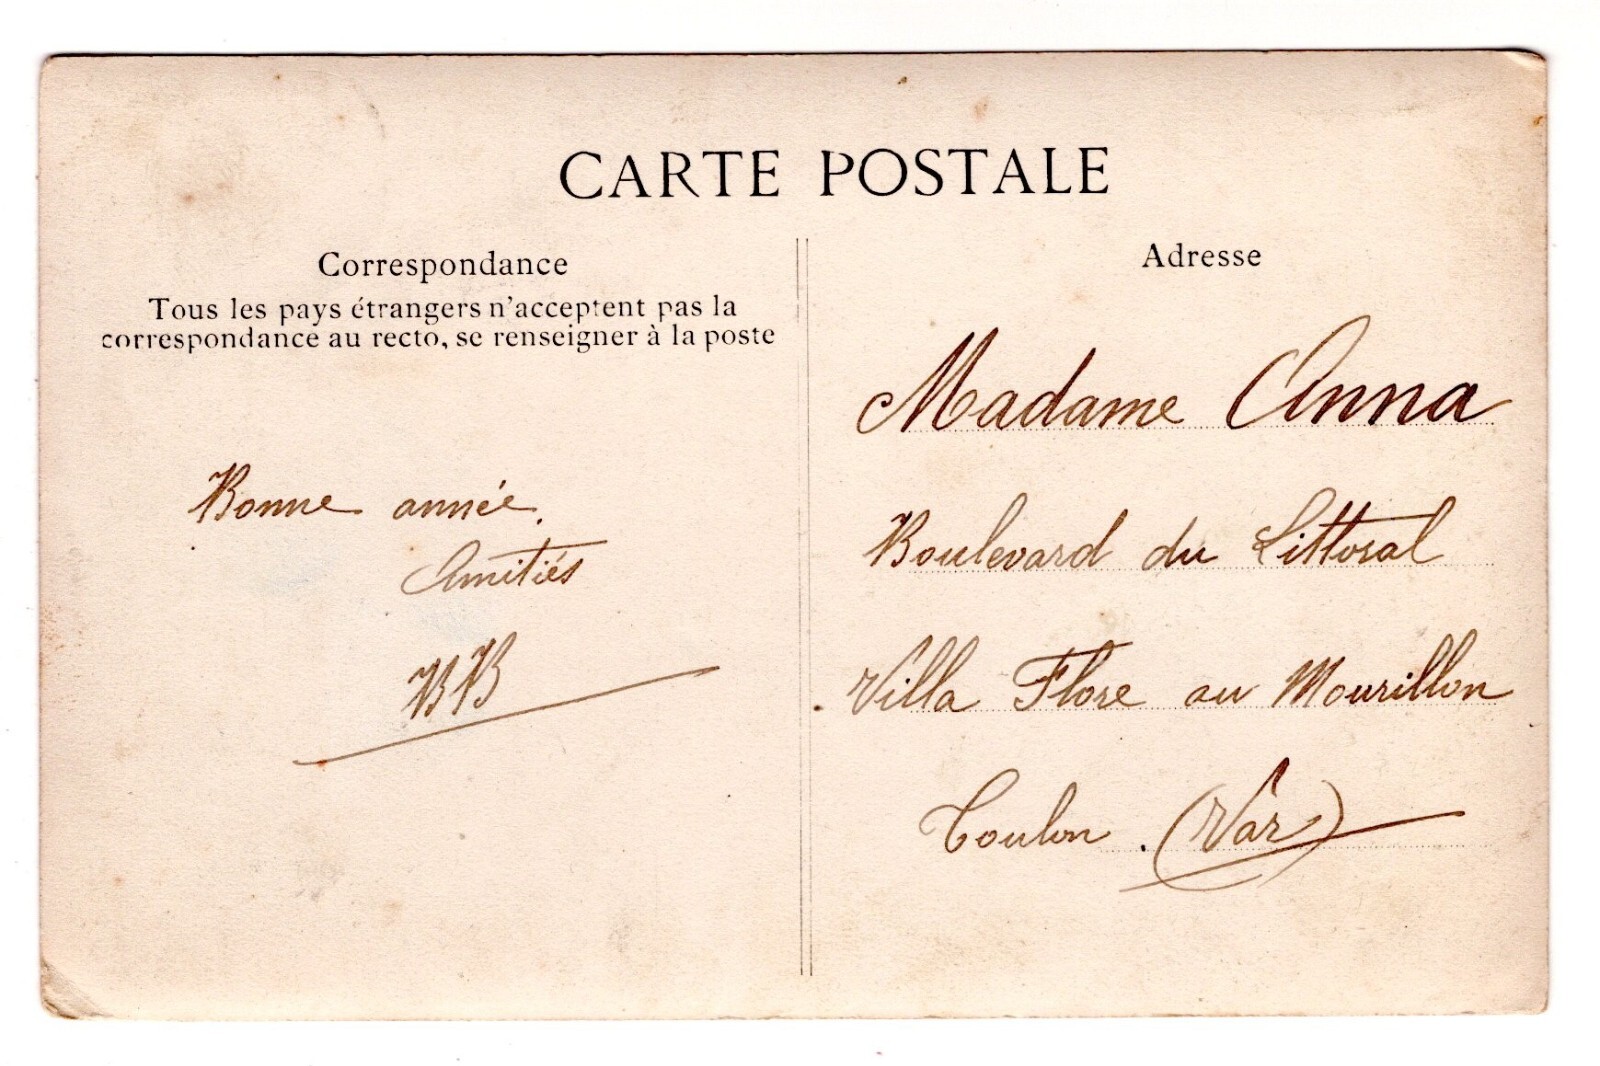 CARTE POSTALE
Correspondance
Tous les pays étrangers n'acceptent pas la
correspondance au recto, se renseigner à la poste
Bonne année.
Amitiés
BB
Adresse
Madame Anna
Boulevard du Littoral
Villa Flore au Mourillon
Toulon. (Var)